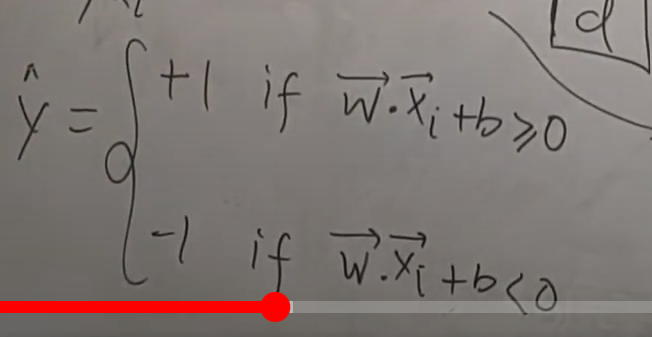 d
ŷ = { +1 if w⃗·x⃗ᵢ + b ≥ 0
-1 if w⃗·x⃗ᵢ + b < 0